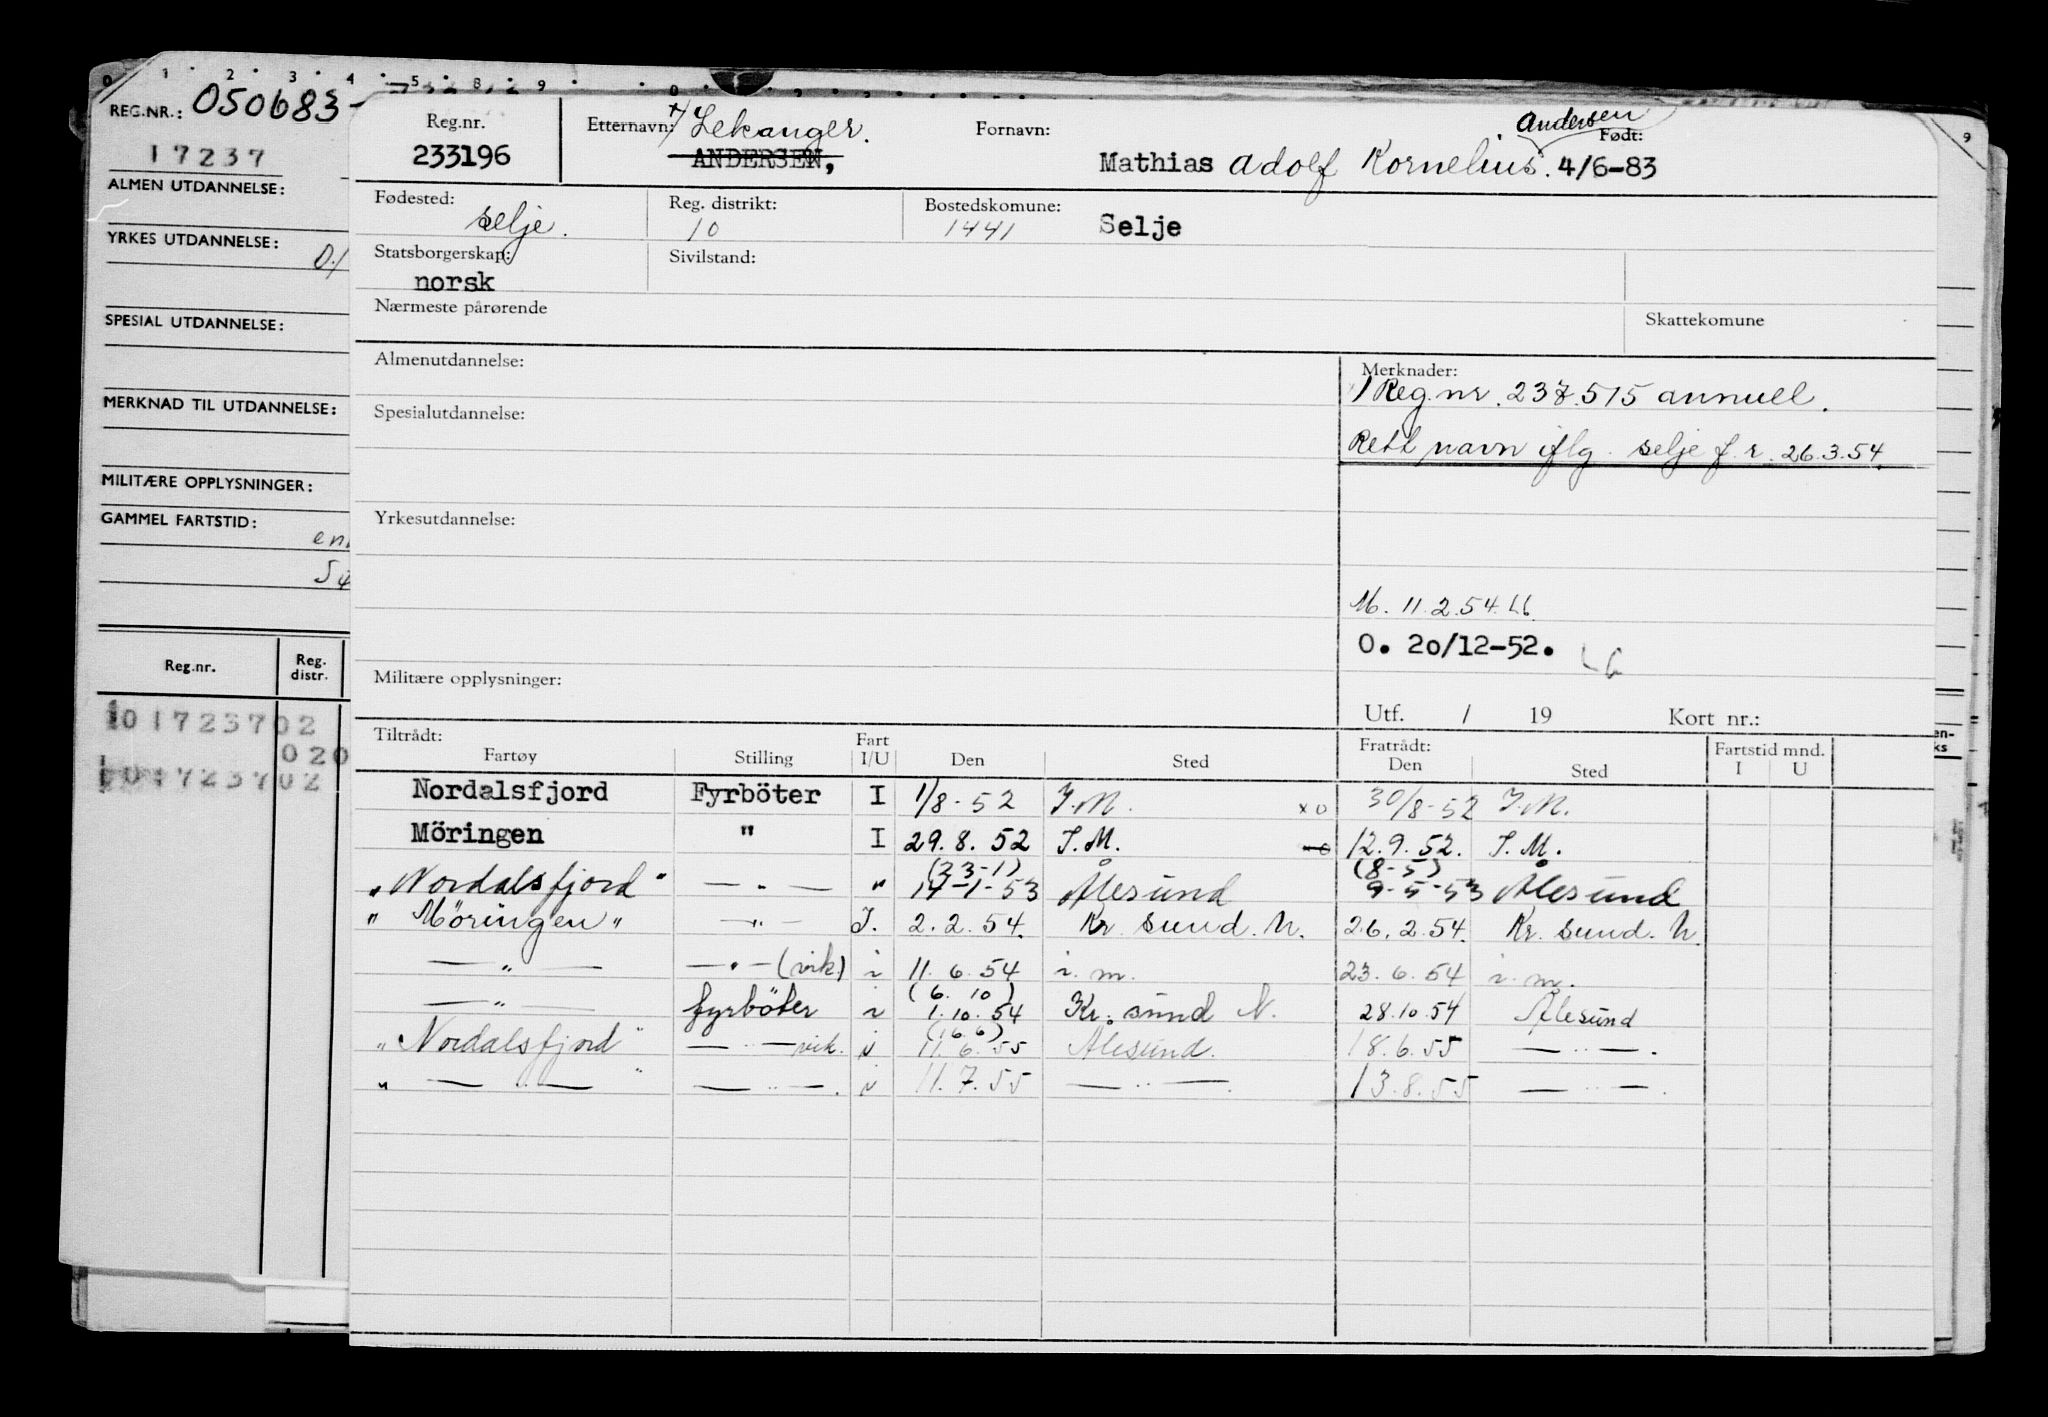 0 1 2 3 4 5 8 9
REG.NR.: 050683-
17237
ALMEN UTDANNELSE:
YRKES UTDANNELSE:
SPESIAL UTDANNELSE:
MERKNAD TIL UTDANNELSE:
MILITÆRE OPPLYSNINGER:
GAMMEL FARTSTID:
Reg.nr. Reg. distr.
101723702
020
101723702
Reg.nr. Etternavn: Lekanger. Fornavn: Andersen Født:
233196 ANDERSEN, Mathias Adolf Kornelius. 4/6-83
Fødested: Reg. distrikt: Bostedskomune:
Selje. 10 1441 Selje
Statsborgerskap: Sivilstand:
norsk
Nærmeste pårørende Skattekomune
Almenutdannelse: Merknader:
1 Reg.nr. 237.515 annull.
Spesialutdannelse:
Rett navn iflg. Selje f.r. 26.3.54.
Yrkesutdannelse:
M. 11.2.54. LG
O. 20/12-52. LG
Militære opplysninger:
Utf. / 19 Kort nr.:
Tiltrådt: Fart Fratrådt: Fartstid mnd.
Fartøy Stilling I/U Den Sted Den Sted I U
Nordalsfjord Fyrböter I 1/8-52 I.M. xo 30/8-52 I.M.
Möringen " I 29.8.52 I.M. 12.9.52. I.M.
(23-1) (8-5)
"Nordalsfjord" — " — " 14-1-53 Ålesund 9-5-53 Ålesund
"Möringen" — " — I. 2.2.54. Kr. sund. N. 26.2.54. Kr. sund. N.
— " — — " — (vik.) i 11.6.54 i.m. 23.6.54 i.m.
(6.10)
— " — fyrböter i 1.10.54 Kr. sund N. 28.10.54 Ålesund
(16.6)
"Nordalsfjord" — " — vik. i 11.6.55 Ålesund. 18.6.55 — " —.
" — " — " — " —. i 11.7.55 — " —. 13.8.55 — " —.